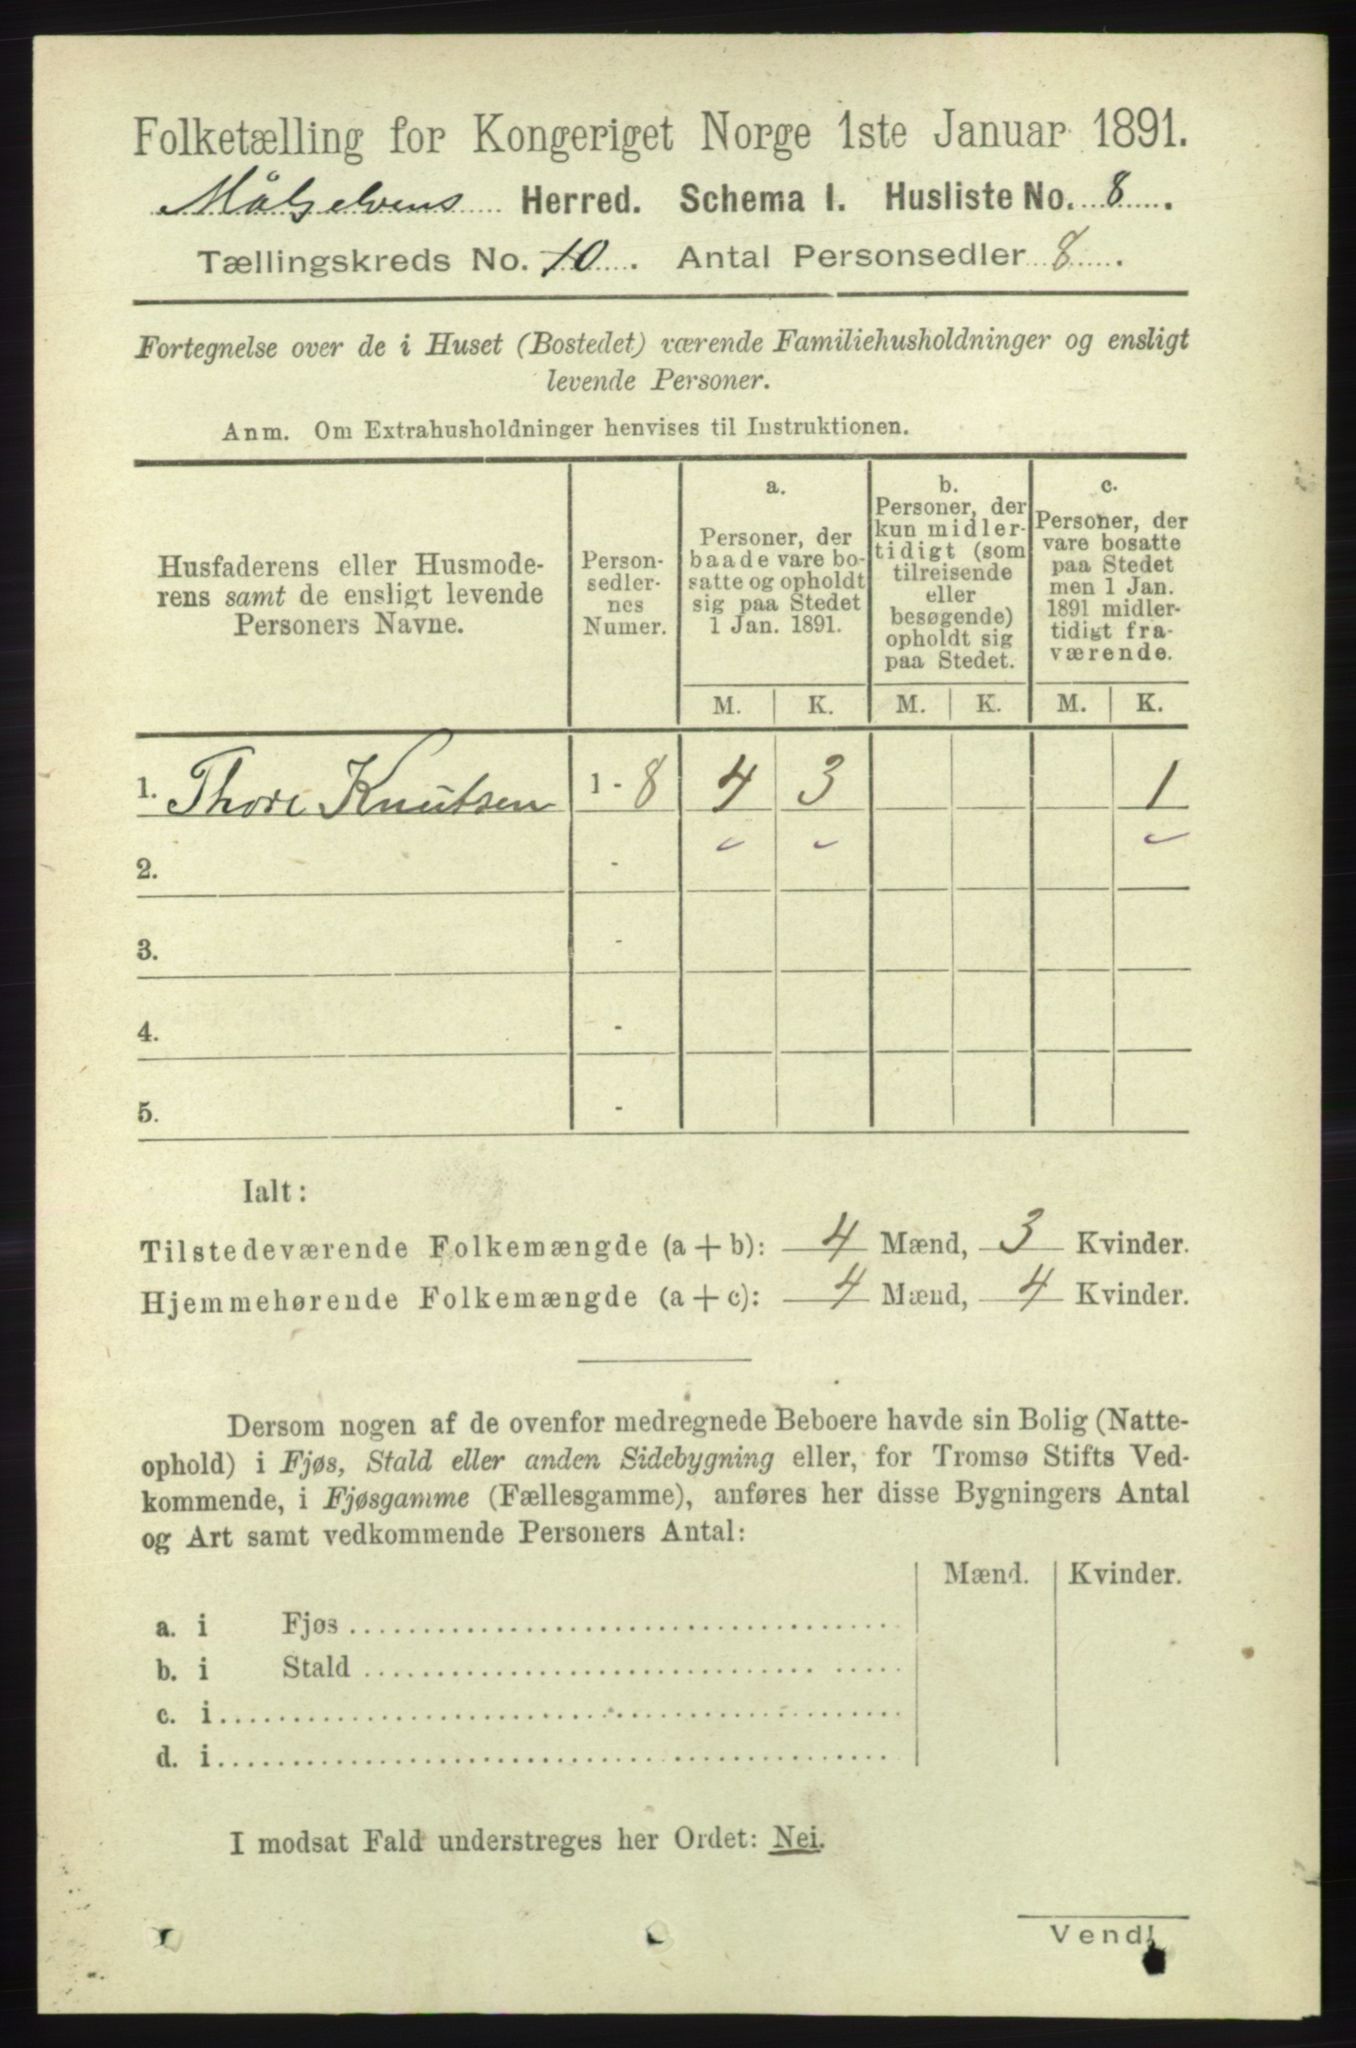 Folketælling for Kongeriget Norge 1ste Januar 1891.
Målselvens Herred. Schema I. Husliste No. 8.
Tællingskreds No. 10. Antal Personsedler 8.
Fortegnelse over de i Huset (Bostedet) værende Familiehusholdninger og ensligt
levende Personer.
Anm. Om Extrahusholdninger henvises til Instruktionen.
Husfaderens eller Husmode-
rens samt de ensligt levende
Personers Navne.
Person-
sedler-
nes
Numer.
a.
Personer, der
baade vare bo-
satte og opholdt
sig paa Stedet
1 Jan. 1891.
b.
Personer, der
kun midler-
tidigt (som
tilreisende
eller
besøgende)
opholdt sig
paa Stedet.
c.
Personer, der
vare bosatte
paa Stedet
men 1 Jan.
1891 midler-
tidigt fra-
værende.
M. K. M. K. M. K.
1. Thore Knutsen 1 - 8 4 3 1
2. -
3. -
4. -
5. -
Ialt:
Tilstedeværende Folkemængde (a + b): 4 Mænd, 3 Kvinder.
Hjemmehørende Folkemængde (a + c): 4 Mænd, 4 Kvinder.
Dersom nogen af de ovenfor medregnede Beboere havde sin Bolig (Natte-
ophold) i Fjøs, Stald eller anden Sidebygning eller, for Tromsø Stifts Ved-
kommende, i Fjøsgamme (Fællesgamme), anføres her disse Bygningers Antal
og Art samt vedkommende Personers Antal:
Mænd. Kvinder.
a. i Fjøs
b. i Stald
c. i
d. i
I modsat Fald understreges her Ordet: Nei.
Vend!